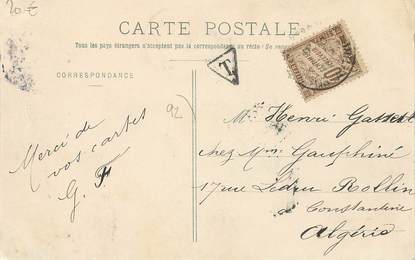 20 €
CARTE POSTALE
Tous les pays étrangers n'acceptent pas la correspondance au recto
CORRESPONDANCE
T
92
Merci de
vos cartes
G. F
M. Henri
chez Mme Gauphiné
17 rue Ledru Rollin
à Constantine
Algérie